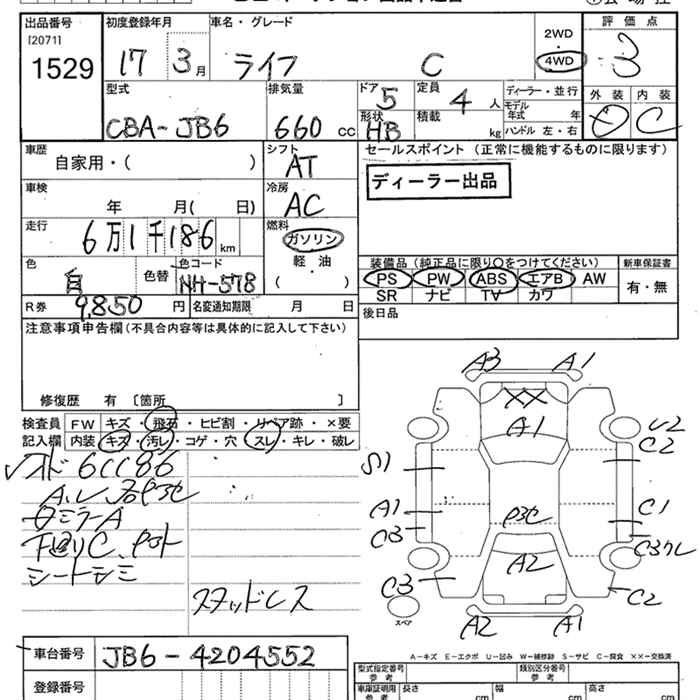 出品番号 初度登録年月 車名・グレード 評価点
[2071] 2WD
1529 17 3月 ライフ C 4WD 3
型式 排気量 ドア 定員 ディーラー・並行 外装 内装
5 4人 モデル年式 年
CBA-JB6 660cc 形状 積載 D C
HB kg ハンドル 左・右
車歴 シフト セールスポイント(正常に機能するものに限ります)
自家用・( ) AT
ディーラー出品
車検 冷房
年 月( 日) AC
走行 燃料
6万1千186km ガソリン
軽・油 装備品(純正品に限り○をつけてください) 新車保証書
色 色コード ( ) PS PW ABS エアB AW 有・無
白 色替 NH-578 SR ナビ TV カワ
R券 9,850円 名変通知期限 月 日 後日品
注意事項申告欄(不具合内容等は具体的に記入して下さい)
A3 A1
XX
修復歴 有〔箇所 〕 A1
検査員 FW キズ・飛石・ヒビ割・リペア跡・×要 U2
記入欄 内装 キズ・汚レ・コゲ・穴・スレ・キレ・破レ C2
6CC86 S1
A1 C1
ミラーA P3C C3
C3
シートシミ A2
C3 C2
スタッドレス
スペア
A2 A1
A-キズ E-エクボ U-凹み W-補修跡 S-サビ C-腐食 XX-交換済
車台番号 JB6-4204552 型式指定番号 類別区分番号
参考 参考
登録番号 車庫証明用 長さ 幅 高さ
参考 cm cm cm